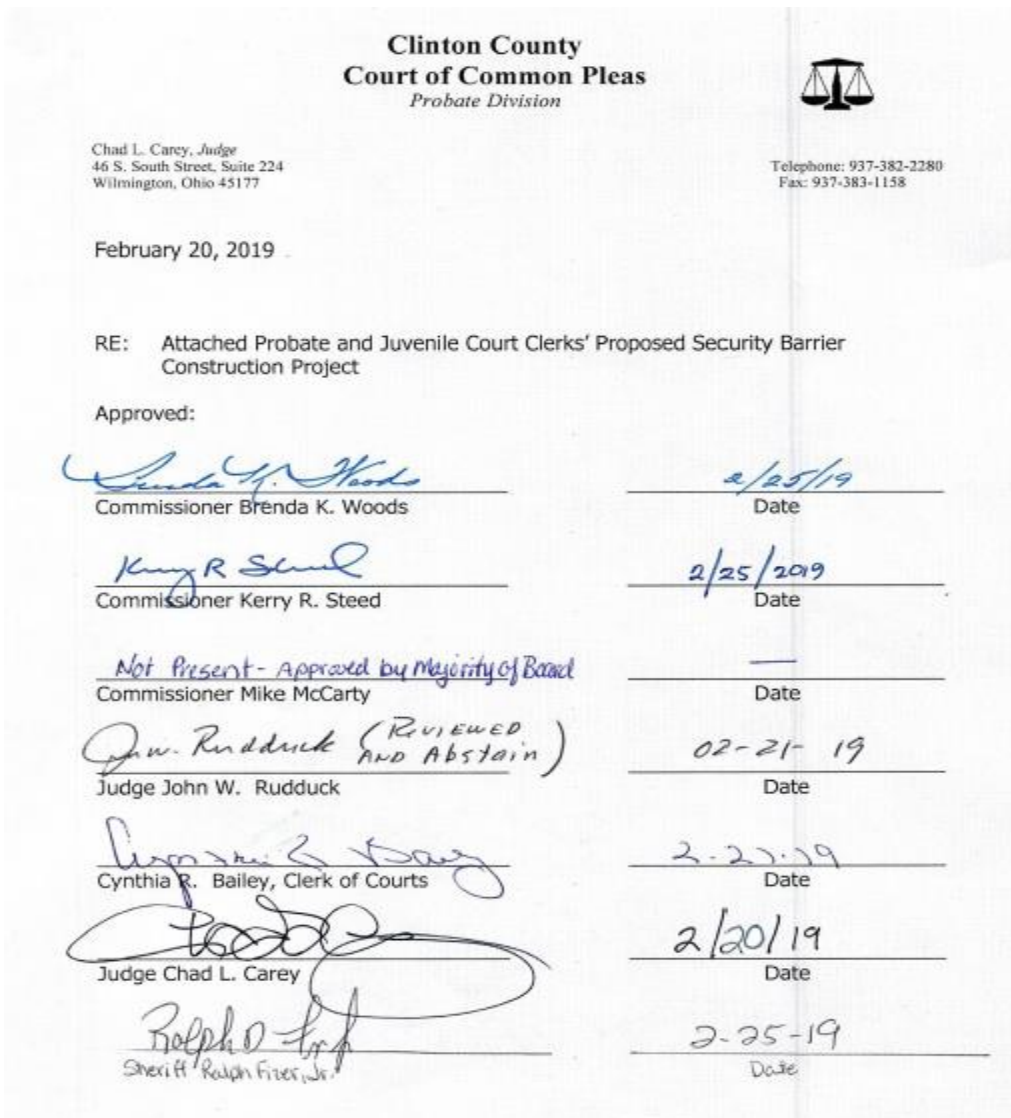 Clinton County
Court of Common Pleas
Probate Division
Chad L. Carey, Judge
46 S. South Street, Suite 224
Wilmington, Ohio 45177
Telephone: 937-382-2280
Fax: 937-383-1158
February 20, 2019
RE: Attached Probate and Juvenile Court Clerks' Proposed Security Barrier
Construction Project
Approved:
Brenda K. Woods 2/25/19
Commissioner Brenda K. Woods Date
2/25/2019
Commissioner Kerry R. Steed Date
Not Present - Approved by Majority of Board —
Commissioner Mike McCarty Date
J.W. Rudduck (Reviewed
And Abstain) 02-21-19
Judge John W. Rudduck Date
Cynthia R. Bailey, Clerk of Courts Date
2/20/19
Judge Chad L. Carey Date
Ralph D 2-25-19
Sheriff Ralph Fizer, Jr. Date